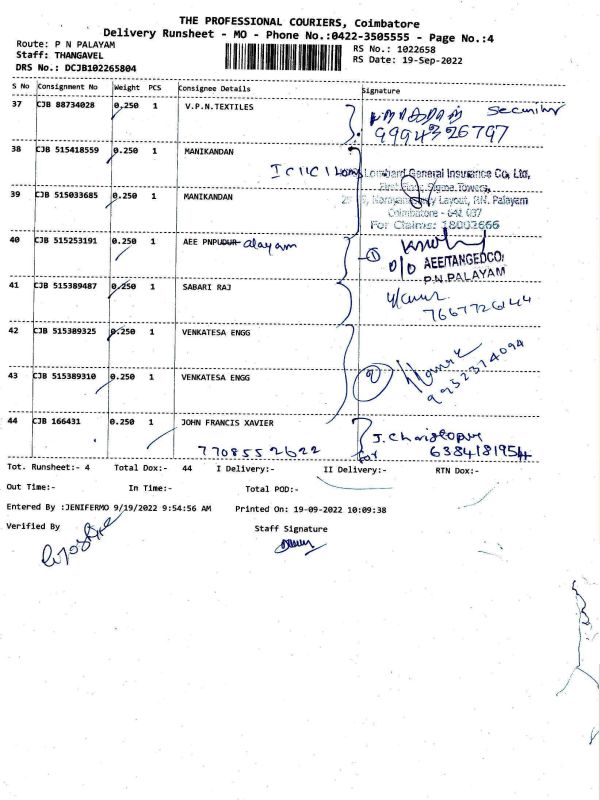 THE PROFESSIONAL COURIERS, Coimbatore
Delivery Runsheet - MO - Phone No.:0422-3505555 - Page No.:4
Route: P N PALAYAM
RS No.: 1022658
Staff: THANGAVEL
RS Date: 19-Sep-2022
DRS No.: DCJB102265804
S No Consignment No Weight PCS Consignee Details Signature
37 CJB 88734028 0.250 1 V.P.N.TEXTILES
9994326797
38 CJB 515418559 0.250 1 MANIKANDAN
Lombard General Insurance Co, Ltd,
First Floor, Sigma Towers,
39 CJB 515033685 0.250 1 MANIKANDAN
Layout, P.N. Palayam
Coimbatore - 641 037
For Claims: 18002666
40 CJB 515253191 0.250 1 AEE PNPUDUR alayam
①
O/O AEE/TANGEDCO/
P.N.PALAYAM
41 CJB 515389487 0.250 1 SABARI RAJ
7667726144
42 CJB 515389325 0.250 1 VENKATESA ENGG
②
9952374094
43 CJB 515389310 0.250 1 VENKATESA ENGG
44 CJB 166431 0.250 1 JOHN FRANCIS XAVIER
7708552622
J. Christopher
for 6384181954
Tot. Runsheet:- 4 Total Dox:- 44 I Delivery:- II Delivery:- RTN Dox:-
Out Time:- In Time:- Total POD:-
Entered By :JENIFERMO 9/19/2022 9:54:56 AM Printed On: 19-09-2022 10:09:38
Verified By Staff Signature